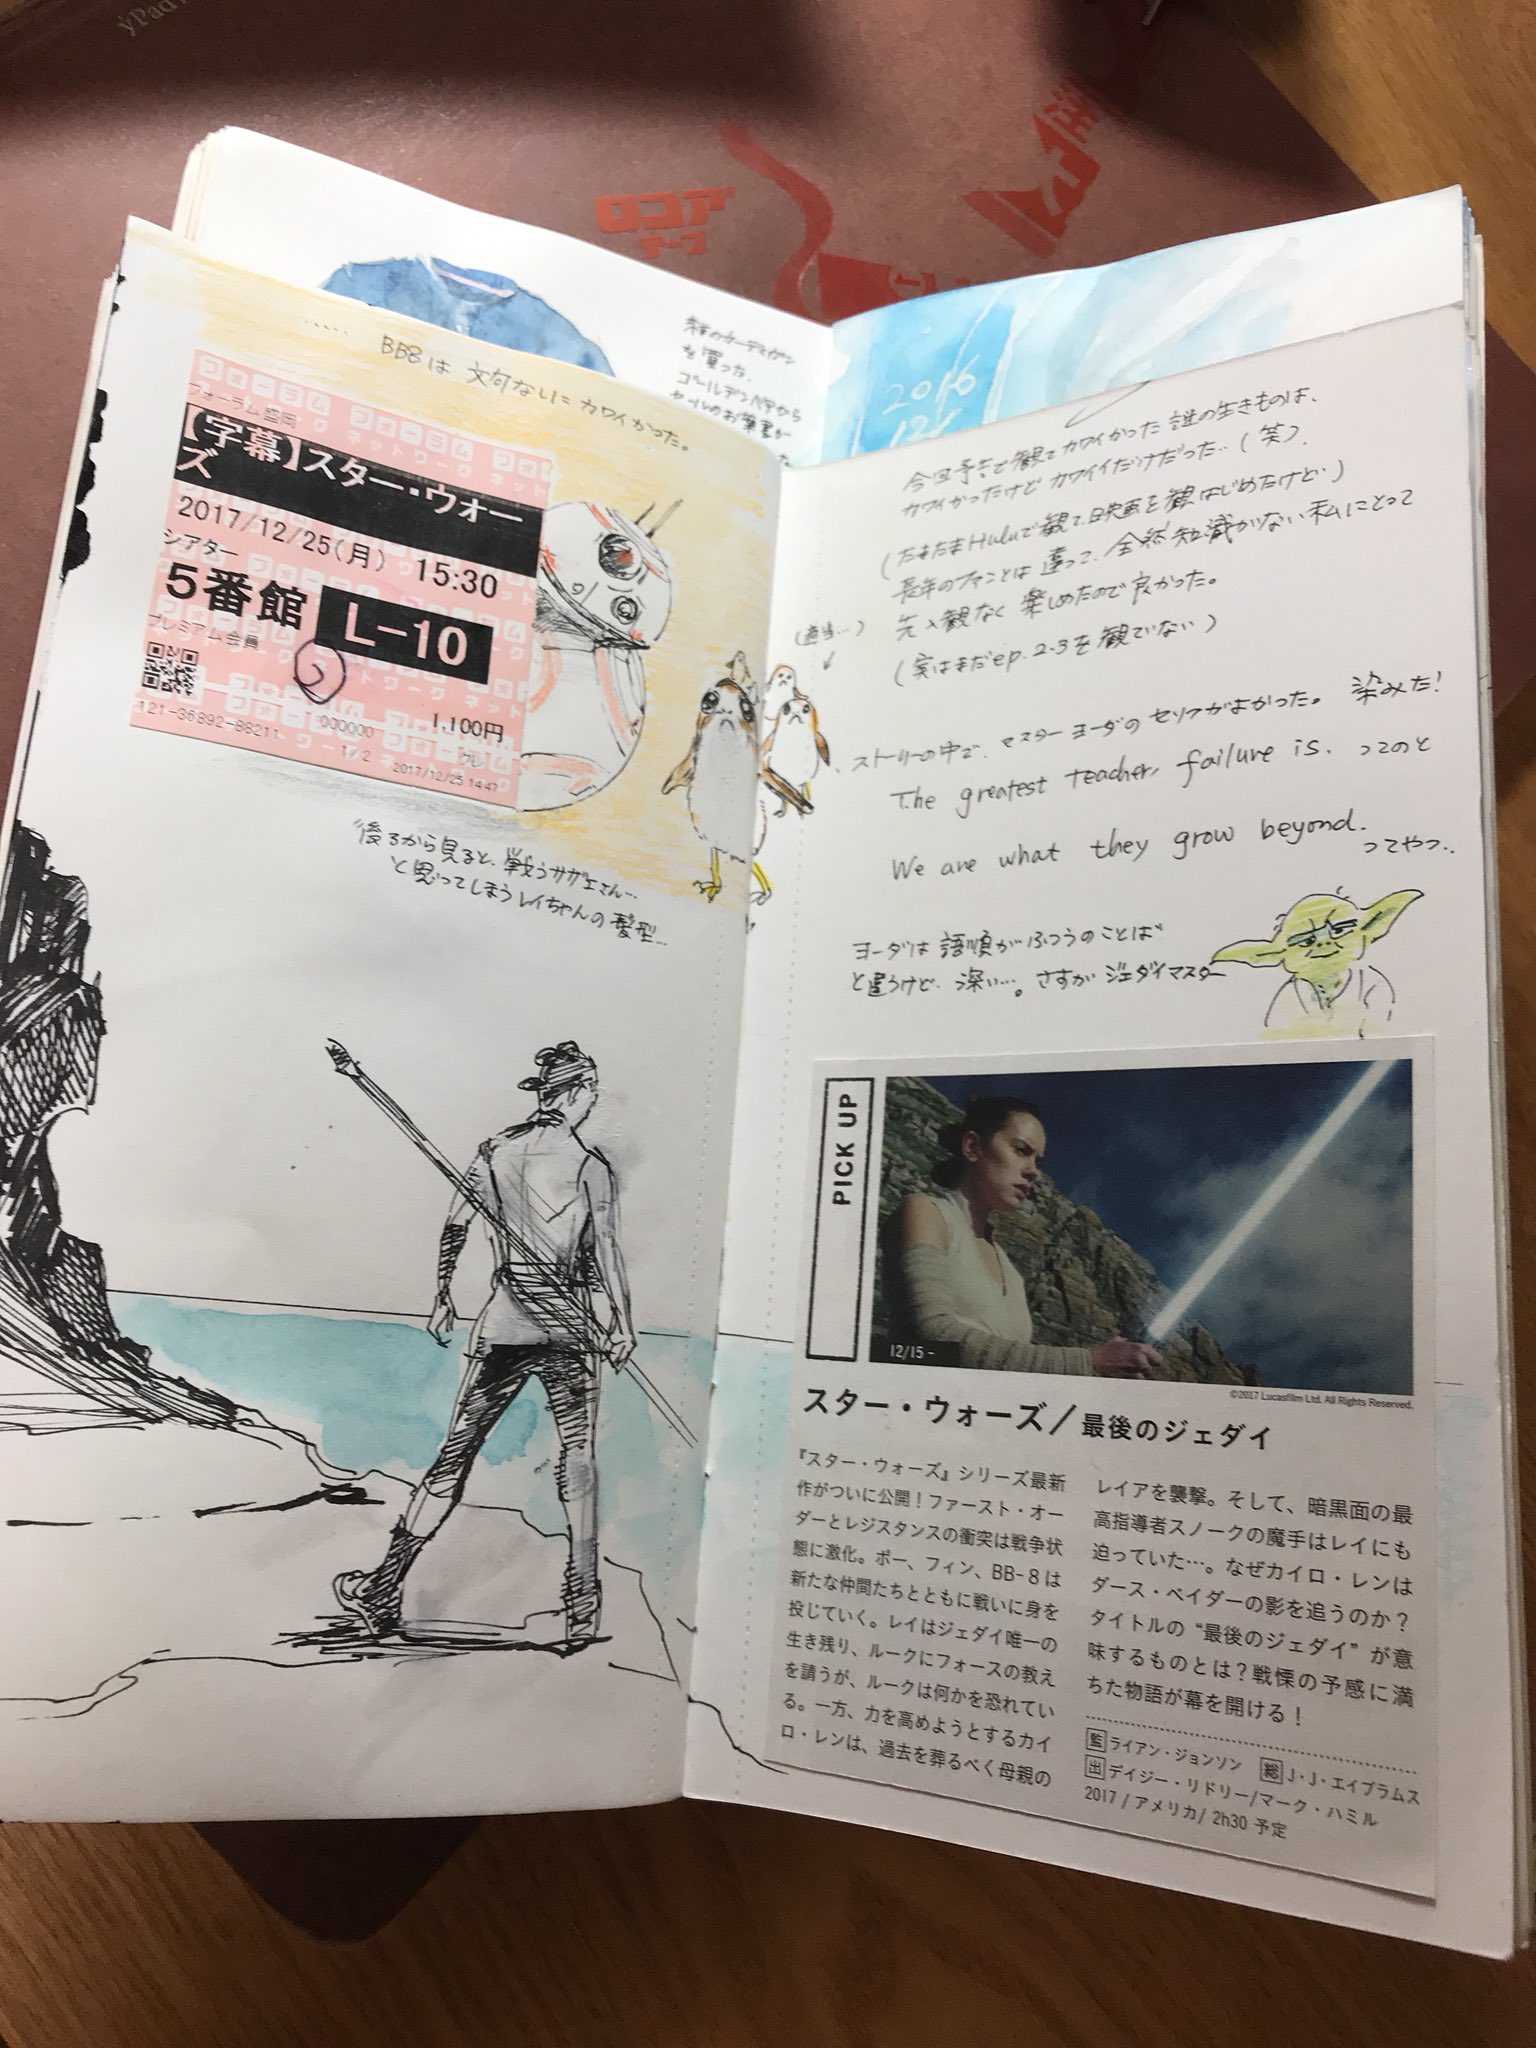 ýPad
ロコアテープ
‥‥‥ BB8は 文句なしに カワイかった。
フォーラム盛岡
【字幕】スター・ウォー
ズ
2017/12/25(月) 15:30
シアター
5番館 L-10
プレミアム会員
1,100円
121-36892-86211 000000 1/2 2017/12/25 14:47
を買った。
2016
今回予告で観てカワイかった謎の生きものは、
カワイかったけど カワイイだけだった‥(笑)。
(たまたまHuluで観て、映画を観はじめたけど)
長年のファンとは 違って、全然知識がない私にとって
先入観なく 楽しめたので良かった。
(実はまだep.2.3を観ていない)
(適当…)
ストーリーの中で、マスターヨーダのセリフがよかった。 染みた!
The greatest teacher, failure is. ってのと
We are what they grow beyond.
ってやつ‥
ヨーダは 語順がふつうのことば
と違うけど、深い…。さすが ジェダイマスター
後ろから見ると、戦うサザエさん…
と思ってしまうレイちゃんの髪型…
PICK UP
12/15 -
©2017 Lucasfilm Ltd. All Rights Reserved.
スター・ウォーズ/最後のジェダイ
『スター・ウォーズ』シリーズ最新
作がついに公開!ファースト・オー
ダーとレジスタンスの衝突は戦争状
態に激化。ポー、フィン、BB-8は
新たな仲間たちとともに戦いに身を
投じていく。レイはジェダイ唯一の
生き残り、ルークにフォースの教え
を請うが、ルークは何かを恐れてい
る。一方、力を高めようとするカイ
ロ・レンは、過去を葬るべく母親の
レイアを襲撃。そして、暗黒面の最
高指導者スノークの魔手はレイにも
迫っていた…。なぜカイロ・レンは
ダース・ベイダーの影を追うのか?
タイトルの“最後のジェダイ”が意
味するものとは?戦慄の予感に満
ちた物語が幕を開ける!
監 ライアン・ジョンソン 総 J・J・エイブラムス
出 デイジー・リドリー/マーク・ハミル
2017 / アメリカ/ 2h30 予定